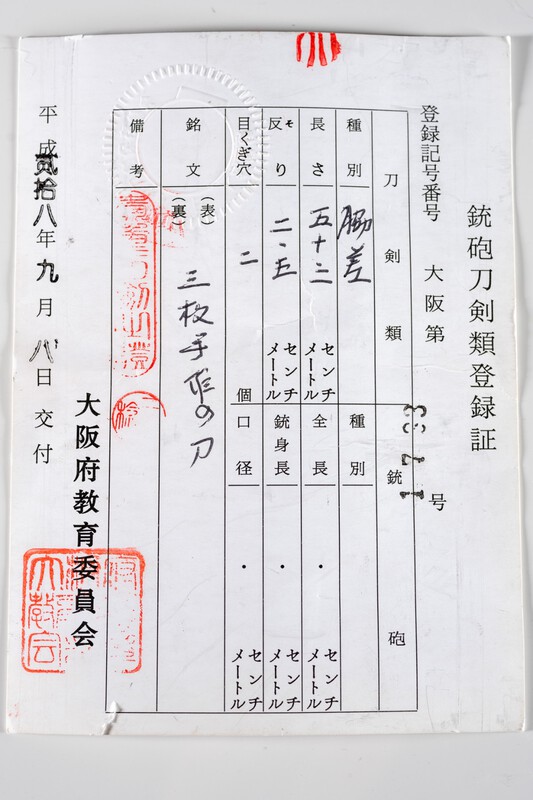 銃砲刀剣類登録証
登録記号番号 大阪第 号
刀剣類 銃砲
種別 脇差 種別
長さ 五十二 センチメートル 全長 ・ センチメートル
反り 二・五 センチメートル 銃身長 ・ センチメートル
目くぎ穴 二 個 口径 ・ センチメートル
銘文 (表)
(裏)
三枚 の刀
備考
大阪府教育委員会
平成貳拾八年九月八日交付